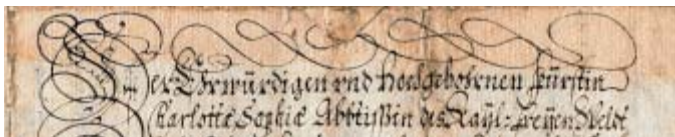 Der Ehrwürdigen vnd Hochgebohrnen Fürstin
Charlotte Sophie Abbtißin des Kayl: freÿen Weldt